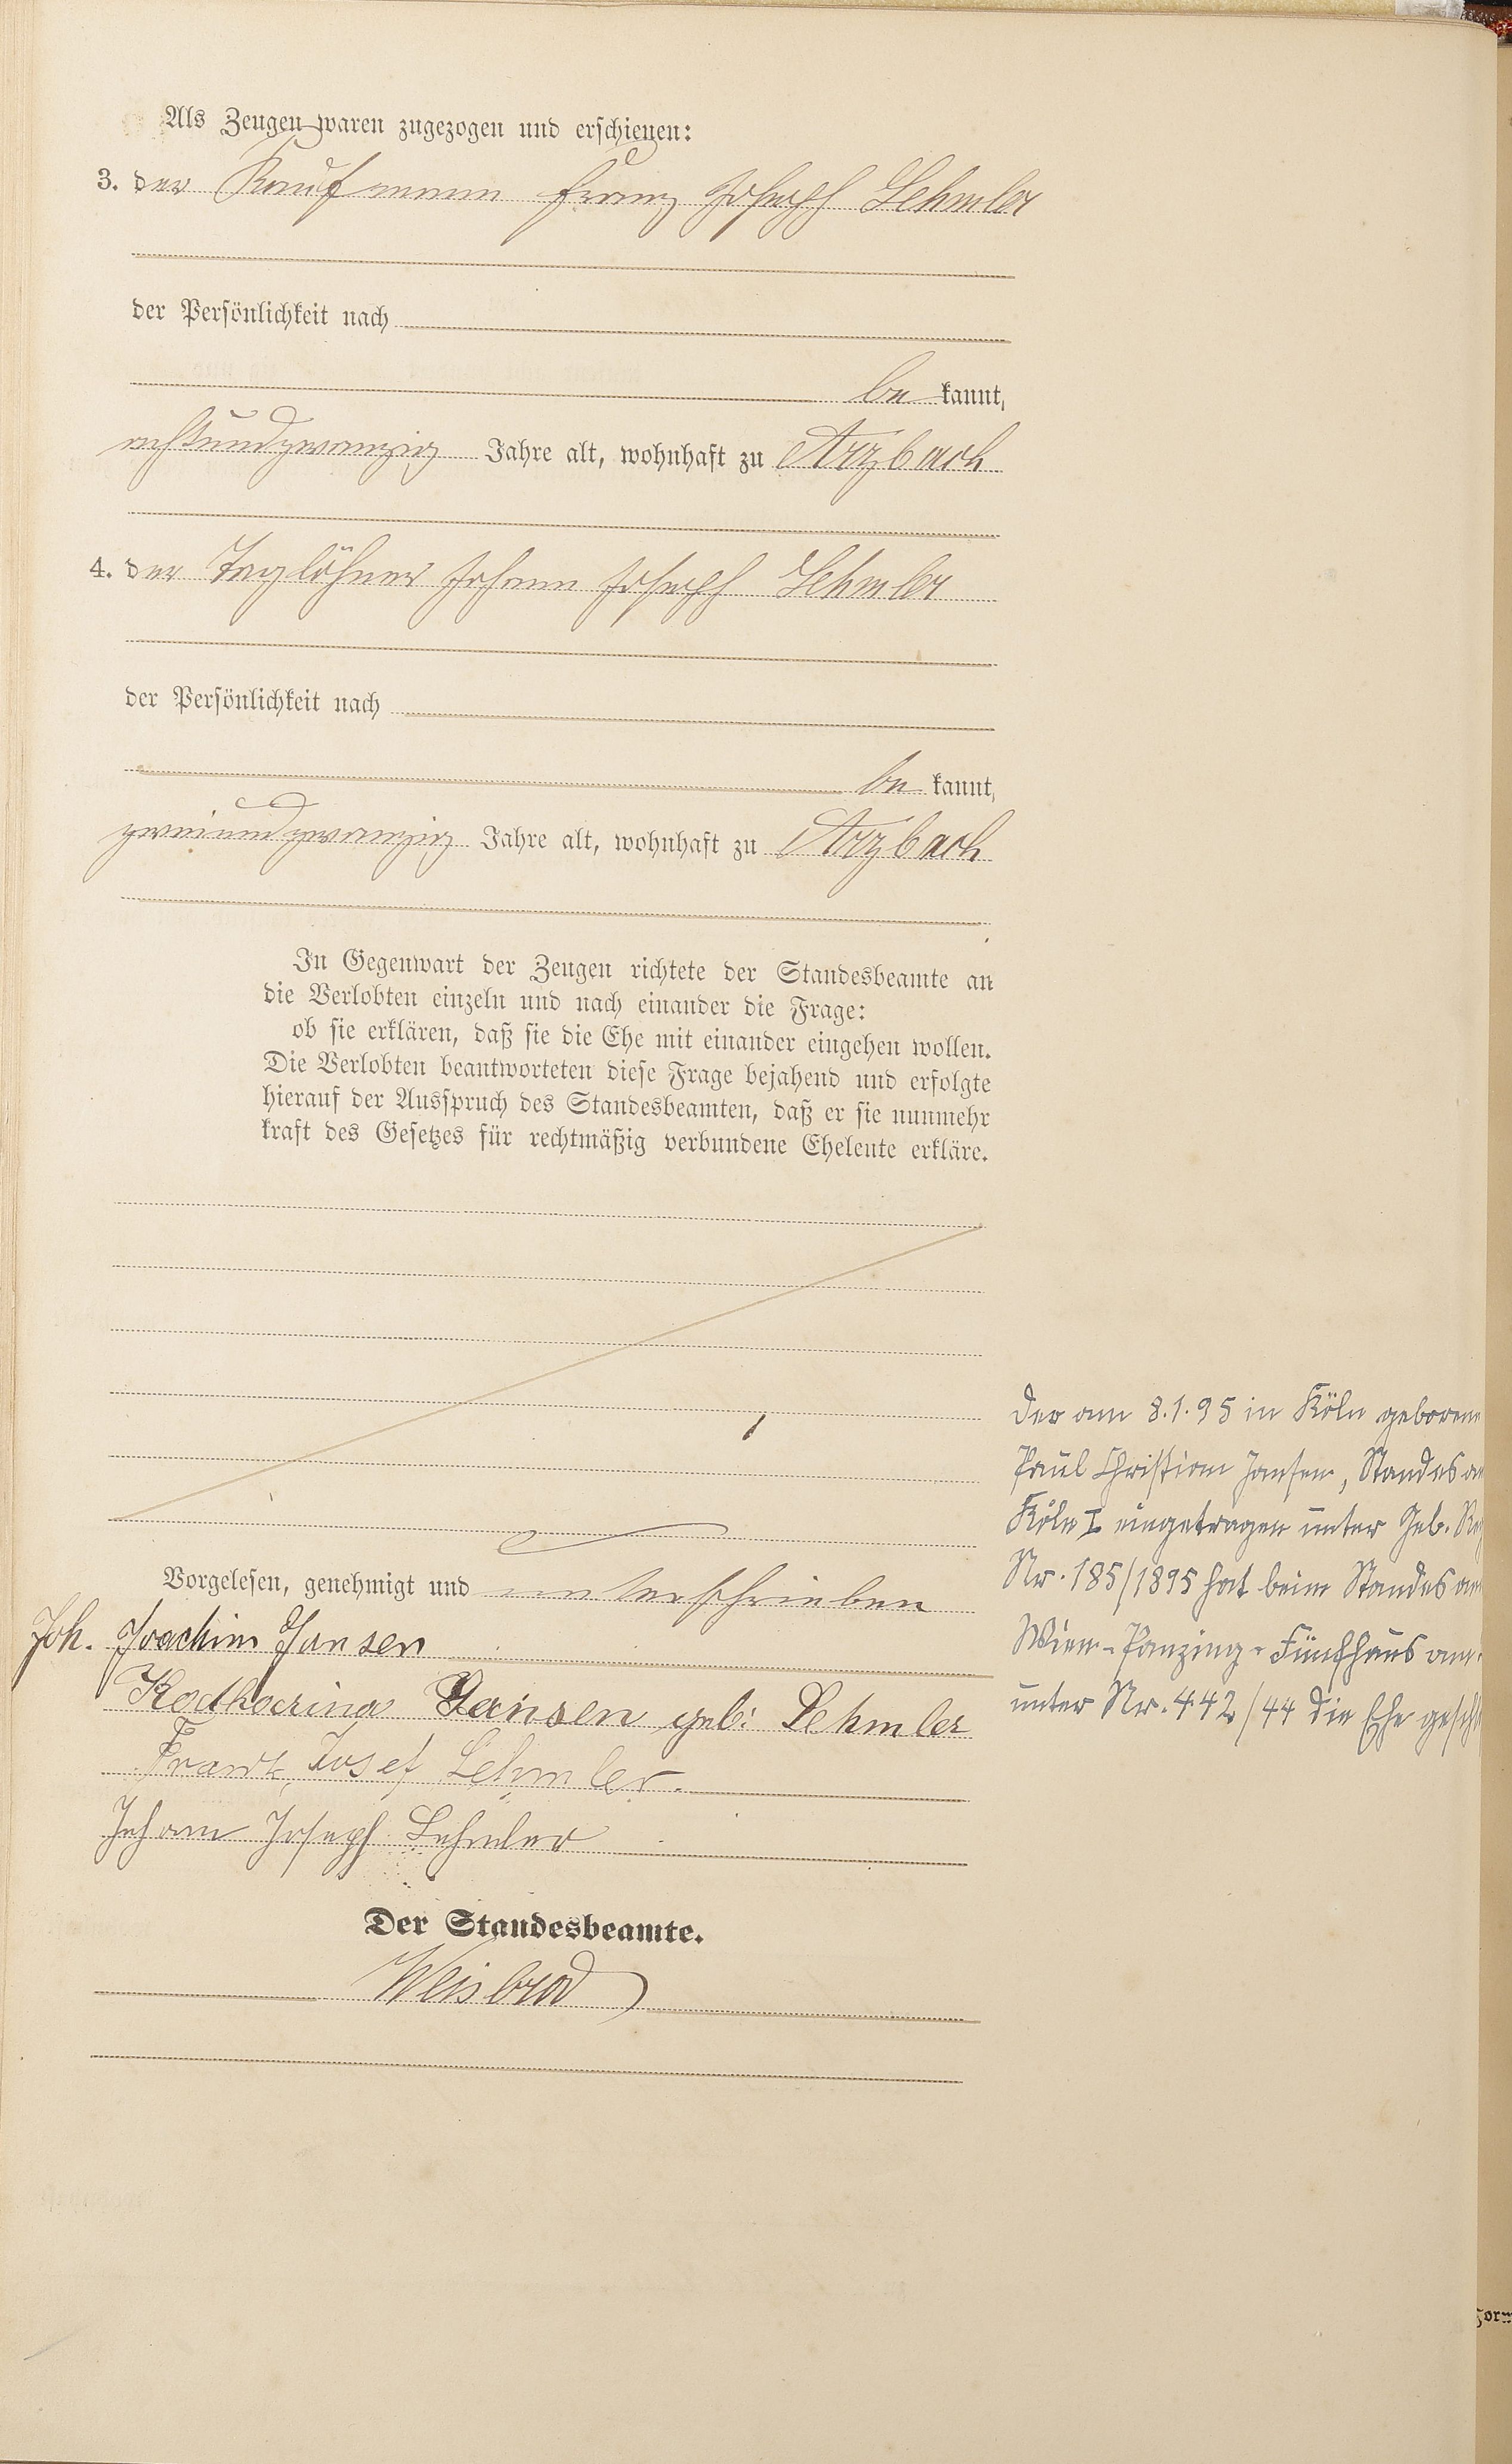 Als Zeugen waren zugezogen und erschienen:
3. der Kaufmann Franz Joseph Lehmler
der Persönlichkeit nach
be kannt,
achtundzwanzig Jahre alt, wohnhaft zu Arzbach
4. der Taglöhner Johann Joseph Lehmler
der Persönlichkeit nach
be kannt,
zweiundzwanzig Jahre alt, wohnhaft zu Arzbach
In Gegenwart der Zeugen richtete der Standesbeamte an
die Verlobten einzeln und nach einander die Frage:
ob sie erklären, daß sie die Ehe mit einander eingehen wollen.
Die Verlobten beantworteten diese Frage bejahend und erfolgte
hierauf der Ausspruch des Standesbeamten, daß er sie nunmehr
kraft des Gesetzes für rechtmäßig verbundene Eheleute erkläre.
Vorgelesen, genehmigt und unterschrieben
Joh. Joachim Jansen
Katharina Jansen geb: Lehmler
Franz Josef Lehmler.
Johann Joseph Lehmler
Der Standesbeamte.
Weisbrod
Der am 8.1.95 in Köln geborene
Paul Christian Jansen, Standesa
Köln I eingetragen unter Geb. Re
Nr. 185/1895 hat beim Standesam
Wien-Panzing-Fünfhaus am
unter Nr. 442/44 die Ehe geschl
Form